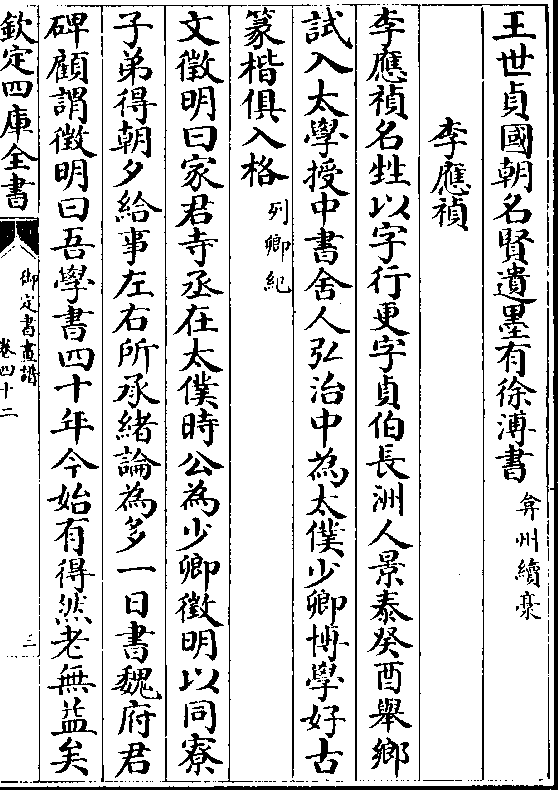 王世貞國朝名賢遺墨有徐溥書弇州續稾
李應禎
李應禎名甡以字行更字貞伯長洲人景泰癸酉舉鄉
試入太學授中書舍人弘治中為太僕少卿博學好古
篆楷俱入格列卿紀
文徵明曰家君寺丞在太僕時公為少卿徵明以同寮
子弟得朝夕給事左右所承緒論為多一日書魏府君
碑顧謂徵明曰吾學書四十年今始有得然老無益矣
欽定四庫全書
御定書畫譜
卷四十二
三